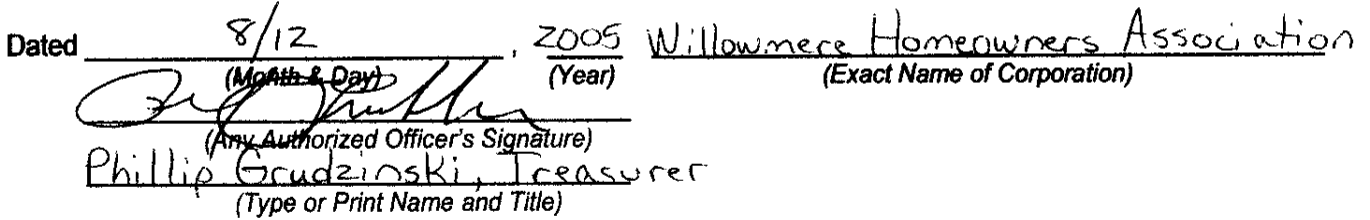 Dated 8/12, 2005 Willowmere Homeowners Association
(Month & Day) (Year) (Exact Name of Corporation)
(Any Authorized Officer's Signature)
Phillip Grudzinski, Treasurer
(Type or Print Name and Title)